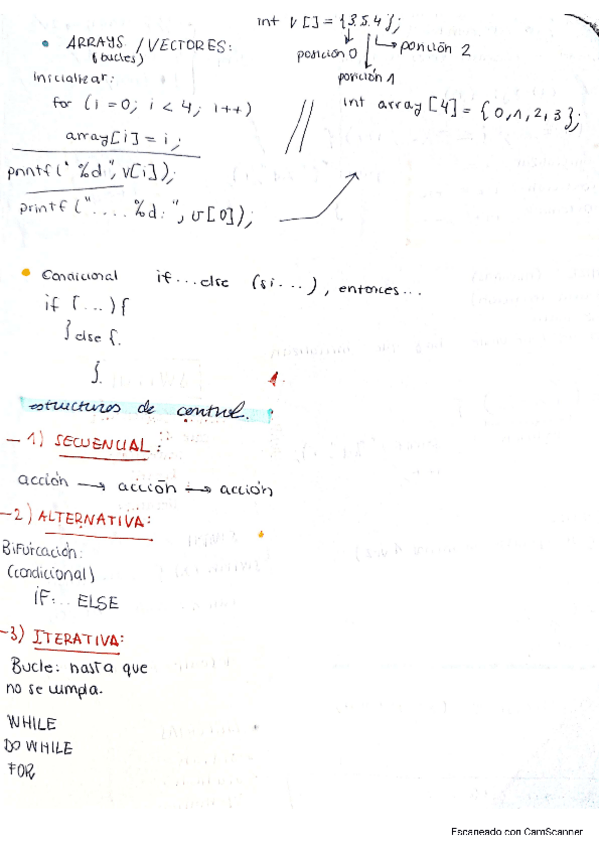 int v[] = {3,5,4};
• ARRAYS / VECTORES:
(bucles)
posición 0
posición 2
posición 1
Inicializar:
for (i = 0; i < 4; i++)
array[i] = i;
// int array[4] = {0,1,2,3};
printf("%d", v[i]);
printf("....%d.", v[0]);
• Condicional if...else (si...), entonces...
if (...) {
} else {.
}.
1.
estructuras de control.
- 1) SECUENCIAL:
acción → acción → acción
- 2) ALTERNATIVA:
Bifurcación:
(condicional)
IF... ELSE
- 3) ITERATIVA:
Bucle: hasta que
no se cumpla.
WHILE
DO WHILE
FOR
Escaneado con CamScanner